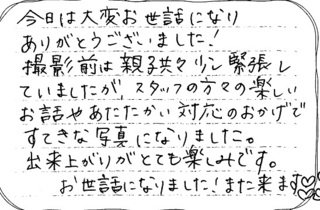 今日は大変お世話になり
ありがとうございました!
撮影前は親子共々少し緊張し
ていましたが、スタッフの方々の楽しい
お話やあたたかい対応のおかげで
すてきな写真になりました。
出来上がりがとても楽しみです。
お世話になりました!また来ます♡♡